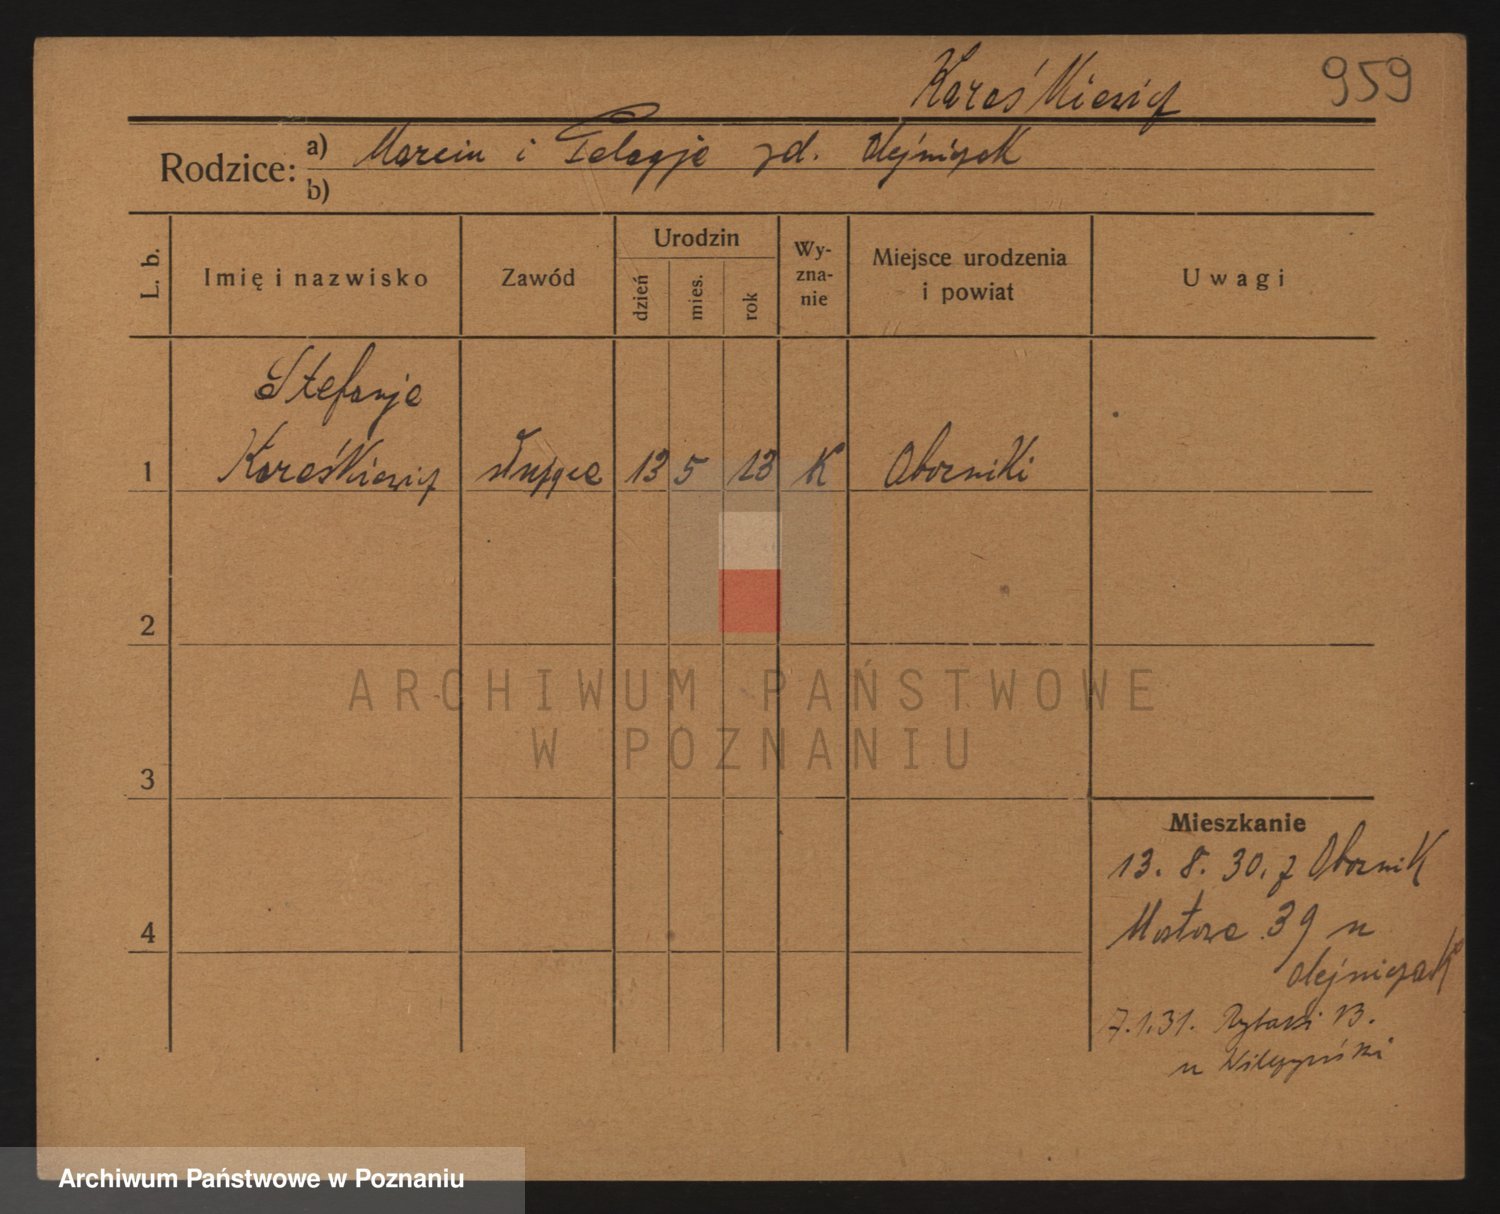 Karaśkiewicz
959
Rodzice: a) Marcin i Pelagja zd. Olejniczak
b)
L. b.
Imię i nazwisko
Zawód
Urodzin
dzień
mies.
rok
Wy-
zna-
nie
Miejsce urodzenia
i powiat
Uwagi
Stefanja
1 Karaśkiewicz służąca 13 5 13 K Oborniki
2
ARCHIWUM PAŃSTWOWE
W POZNANIU
3
Mieszkanie
13. 8. 30. z Obornik
4
Mostowa 39 u
Olejniczak
7.1.31. Rybaki 13.
u
Archiwum Państwowe w Poznaniu